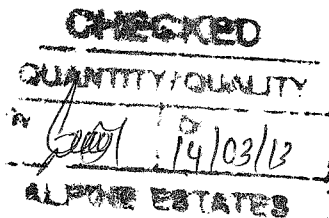 CHECKED
QUANTITY/QUALITY
14/03/13
ALPINE ESTATES